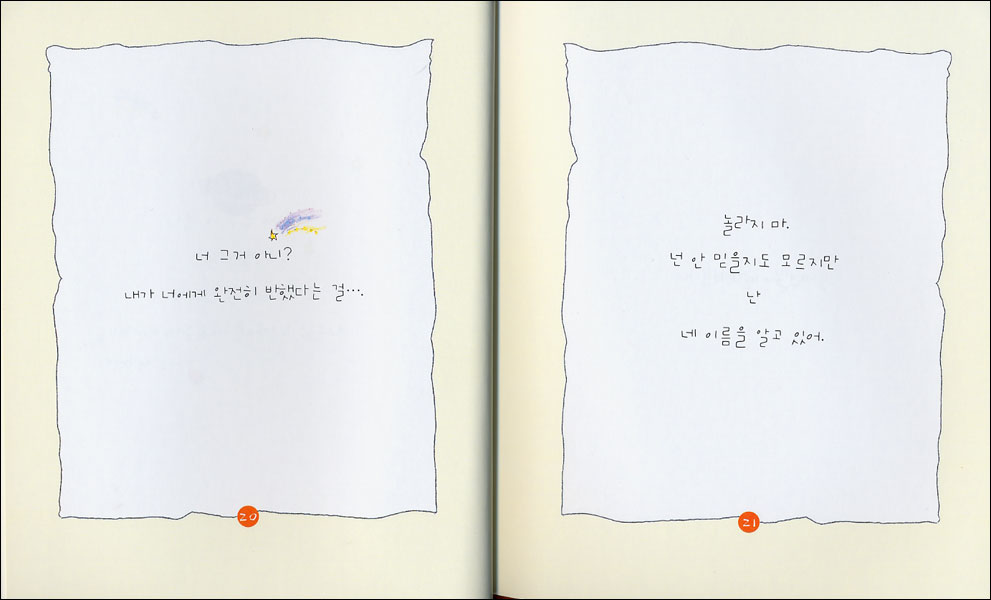 너 그거 아니?
내가 너에게 완전히 반했다는 걸….
20
놀라지 마.
넌 안 믿을지도 모르지만
난
네 이름을 알고 있어.
21